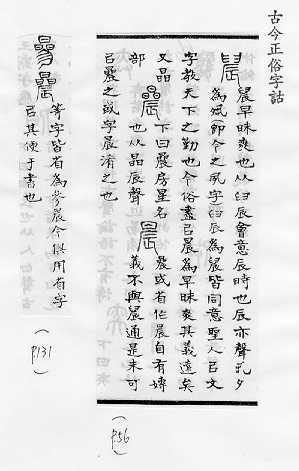 古今正俗字詁
晨 晨早昧爽也从臼辰會意辰時也辰亦聲丮夕
為𡖊即今之夙字臼辰為晨皆同意聖人㠯文
字教天下之勤也今俗盡㠯晨為早昧爽其義遠矣
又晶部 曟 下曰曟房星名也从晶辰聲 晨 曟或省作晨自有專義不與晨通是未可
㠯曟之或字晨淆之也
(P56)
曑曟 等字皆省為參晨今俱用省字
㠯其便于書也
(P131)